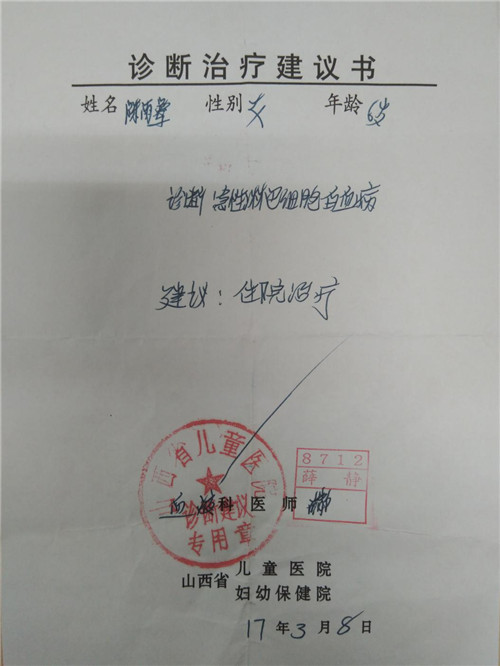 诊断治疗建议书
姓名 陈雨 性别 女 年龄 6岁
诊断 急性淋巴细胞白血病
建议：住院治疗
山西省儿童医院
诊断建议
专用章
8712
薛静
血液科医师
山西省 儿童医院
妇幼保健院
17年3月8日